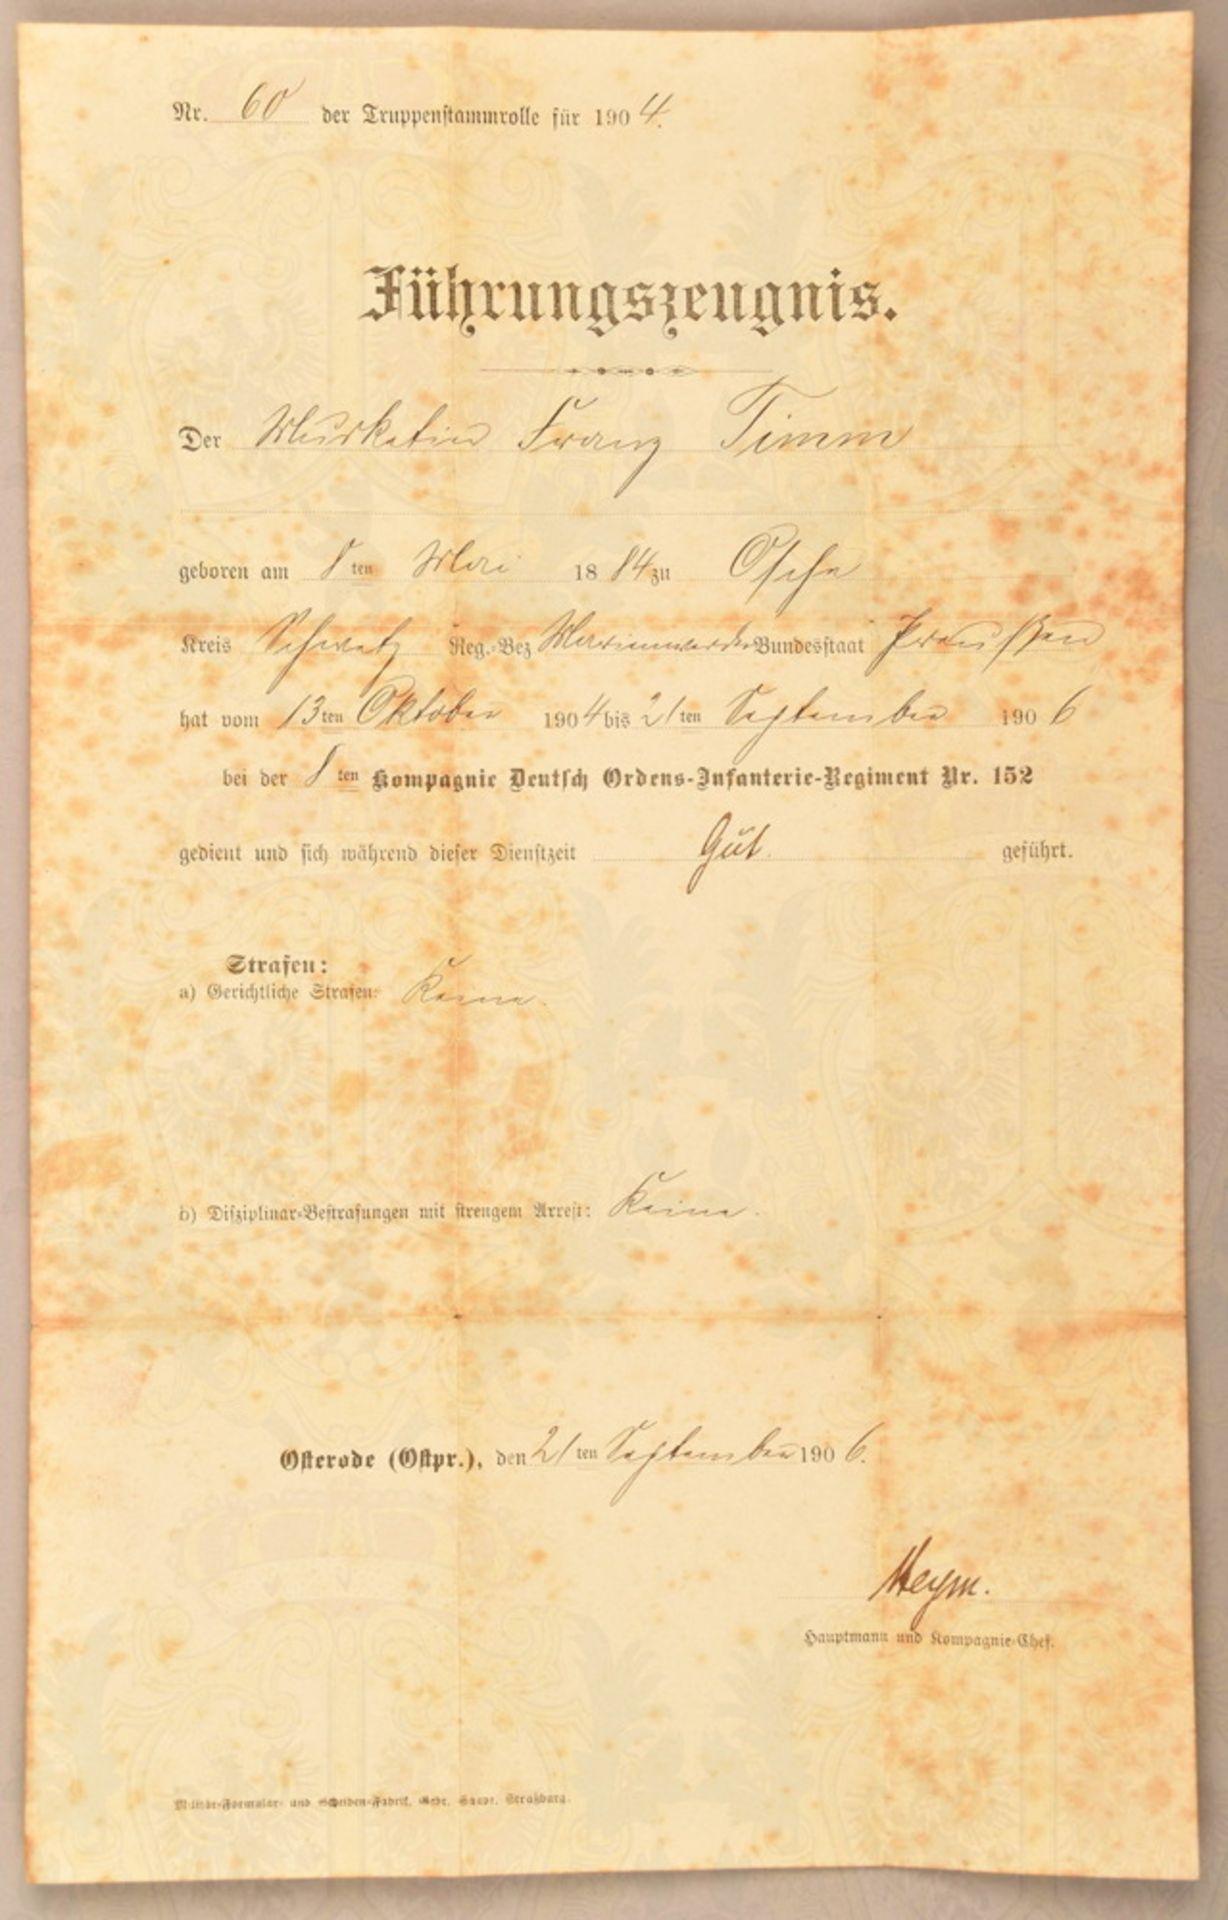 Nr. 60 der Truppenstammrolle für 1904.
Führungszeugnis.
Der Musketier Franz Timm
geboren am 8ten Mai 1884 zu Osche
Kreis Schwetz Reg.-Bez Marienwerder Bundesstaat Preußen
hat vom 13ten Oktober 1904 bis 21ten September 1906
bei der 8ten Kompagnie Deutsch Ordens-Infanterie-Regiment Nr. 152
gedient und sich während dieser Dienstzeit Gut. geführt.
Strafen:
a) Gerichtliche Strafen: Keine.
b) Disziplinar-Bestrafungen mit strengem Arrest: Keine.
Osterode (Ostpr.), den 21ten September 1906.
Heym.
Hauptmann und Kompagnie-Chef.
Militär-Formular- und Scheiben-Fabrik, Gebr. Straßburg.